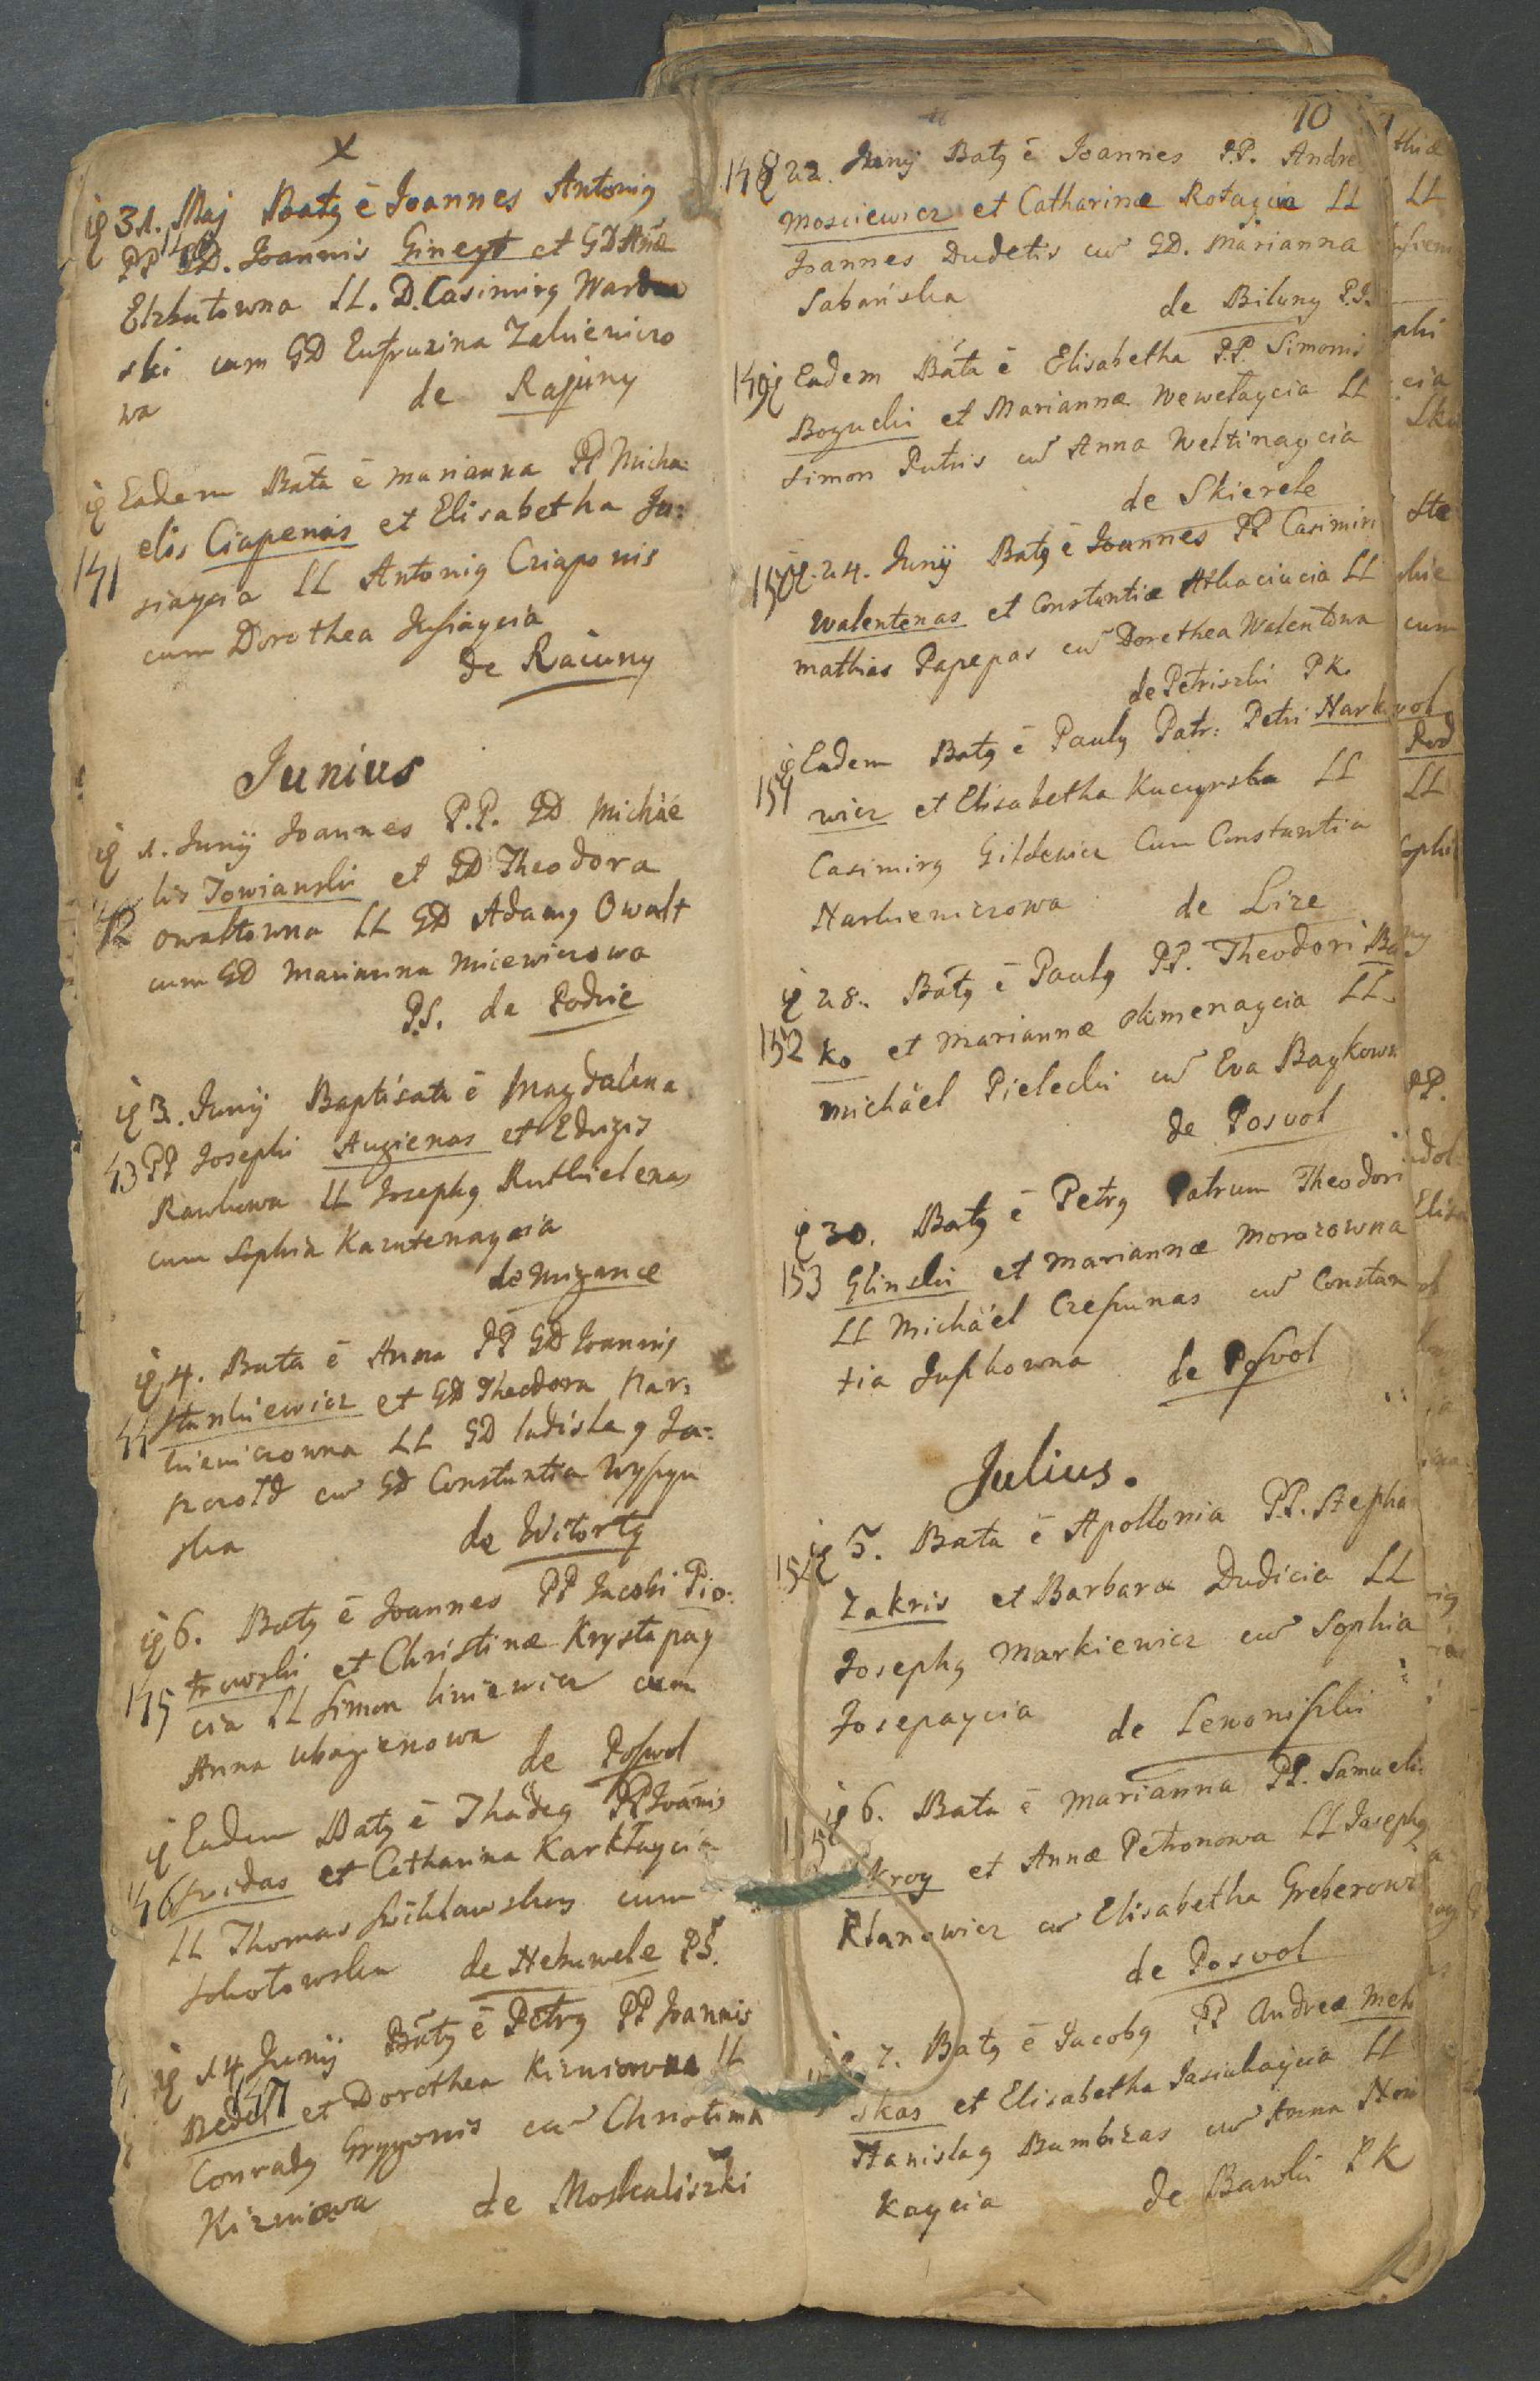 x
31. Maj Batq ē Joannes Antoniq
140 PP GD. Joannis Gineyt et GD Añæ
Elzbutowna LL. D. Casimirq Wardu
ski cum GD Eufruzina Zalnienicro
wa de Rajuny
Eadem Bãta ē Marianna PP Micha:
elis Ciapenas et Elisabetha Ju:
141 siaycia LL Antoniq Cziaponis
cum Dorothea Jusiaycia
de Raiuny
Junius
1. Junÿ Joannes P.P. GD Michäe
lis Towianski et GD Theodora
42 Owaltowna LL GD Adamq Owalt
cum GD Marianna Micewiczowa
P.S. de Podnie
3. Junÿ Baptisata ē Magdalena
43 PP Josephi Augienas et Edvigis
Rawluwa LL Josephq Rutkielenas
cum Sophia Kazutenaycia
de Mizance
4. Bata ē Anna PP GD Joannis
44 Stankiewicz et GD Theodora Nar:
kieniczowna LL GD ladislaq Ja:
cũ GD Constantia Wyssyn
ska de Witorty
6. Batq ē Joannes PP Jacobi Pio:
145 trowski et Christinæ Krystapay
cia LL Simon liniewicz cum
Anna Ubagienowa
de Poswol
Eadem Batq ē Thadeq PP Joānis
146 et Catharina Karklaycia
LL Thomas cum
Sokotowska de Nekunele PS.
14 Junÿ Bãtq ē Petrq PP Joannis
147 Bedol et Dorothea Kizniowna LL
Conradq Grygonis cũ Christina
Kizniowa de Moskaliszki
10
148 22. Junÿ Batq ē Joannes P.P. Andre
Mosciewicz et Catharinæ Rotaycia LL
Joannes Dudetis cũ GD. Marianna
Sabańska de Biluny P.S.
149 Eadem Bãta ē Elisabetha P.P. Simonis
Bogucki et Mariannæ Wewetaycia LL
Simon Putris cũ Anna Weltinaycia
de Skierele
150 24. Junÿ Batq ē Joannes PP Casimiri
Walentenas et Constantiæ Atkaciucia LL
Mathias Papepas cũ Dorethea Walentowna
de Petriszki PK.
Eadem Batq ē Paulq Patr: Petri Nark
151 wicz et Elisabetha Kucyrska LL
Casimirq Gildewicz Cum Constantia
Narkieniczowa de Lize
28. Bãtq ē Paulq P.P. Theodori Bay
152 ko et Mariannæ Okmenaycia LL
Michäel Pielecki cũ Eva Baykown
de Posvol
30. Batq ē Petrq Patrum Theodori
153 Glinski et Mariannæ Morozowna
LL Michäel Czepunas cũ Constan
tia Juskowna de Posvol
Julius.
154 5. Bata ē Apollonia P.P. Stepha
Zakris et Barbaræ Dudicia LL
Josephq Markiewicz cũ Sophia
Josepaycia de Lenoniszki
6. Bata ē Marianna PP. Samueli
155 Skroy et Annæ Petronowa LL Josephq
Klanowicz cũ Elisabetha Greberowa
de Posvol
7. Batq ē Jacobq PP Andreæ Meh
skas et Elisabetha Jasiukaycia LL
Stanislaq Bumbizas cũ Anna Nor
kaycia de Bawli PK